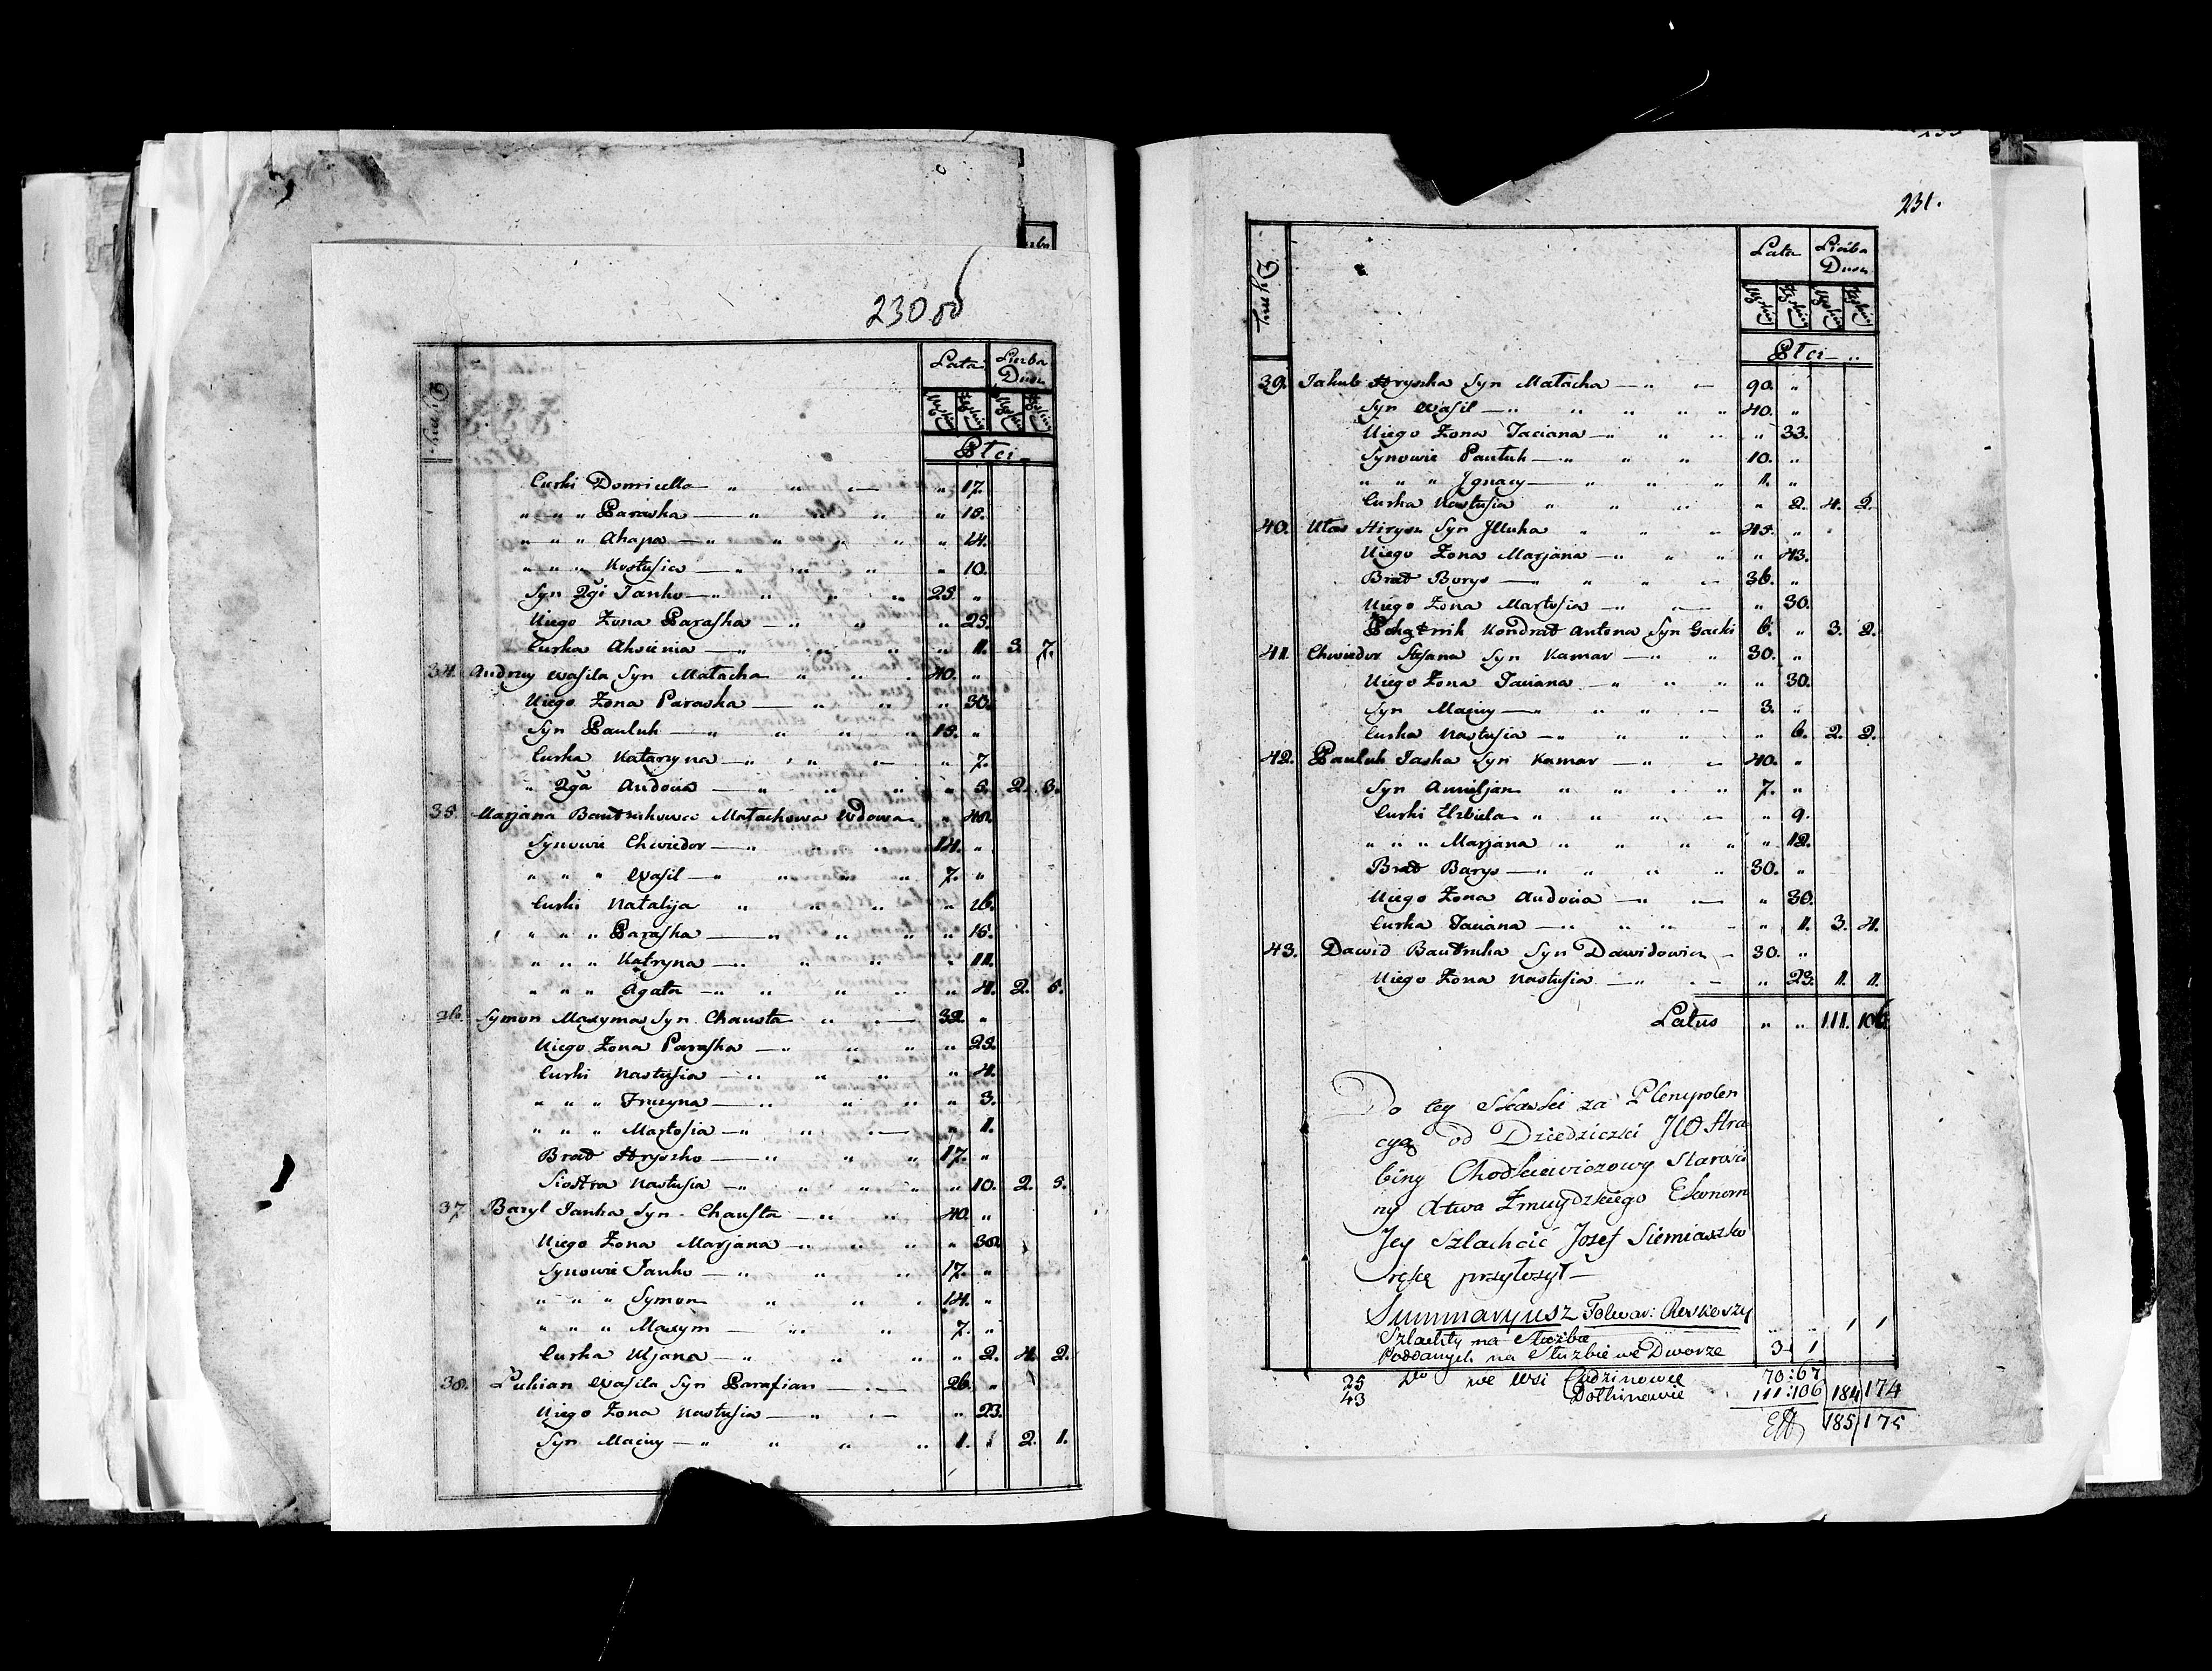 230 об
Dymy.
Lata Liczba Dusz
Męzkiey Żeńskiey Męzkiey Żeńskiey
Płci
Curki Domicella " " — " 17.
" " " Paraska — " " " " 15.
" " " Ahapa — " " " " " 14.
" " " Nastusia — " " " " 10.
Syn 2gi Janko — " " " 25. "
Uiego Żona Paraska — " " " 25.
Curka Ahsienia — " " " " 1. 3. 7.
34. Andrzey Wasila Syn Matacha " " . 40. "
Uiego Żona Paraska — " " " 30.
Syn Pauluk — " " " 15. "
Curka Kataryna — " " — " 7.
" 2ga Audocia — " " " " 3. 2. 3.
35. Marjana Bautrukowa Matachowa Wdowa " 40.
Synowie Chwiedor — " " " 14. "
" " " Wasil — " " " " 7. "
Curki Natalija " " " " 26.
" " " Paraska — " " " " 15.
" " " Katryna — " " " " 11.
" " " Agata — " " " " " 4. 2. 5.
36. Symon Maxyma Syn Chausta " — 32. "
Uiego Żona Paraska — " " " " 25.
Curki Nastusia — " " " " 4.
" " " Fruzyna — " " " " 3.
" " " Martosia — " " — " 1.
Brat Hryszko — " " " 17. "
Siostra Nastusia — " " " " " 10. 2. 5.
37. Bazyl Janka Syn Chausta — " " 40. "
Uiego Żona Marjana — " " " " 30.
Synowie Janko — " " " 17. "
" " " Symon " " " 14. "
" " " Maxym — " " 7. "
Curka Uljana — " " " " 2. 4. 2.
38. Łukian Wasila Syn Parafian — — 26. "
Uiego Żona Nastusia — " — " 23.
Syn Maciey — " " " " 1. " 2. 1.
231.
Dymy
Lata Liczba Dusz
Męzkiey Żeńskiey Męzkiey Żeńskiey
Płci
39. Jakub Hryszka Syn Matacha — " — 90. "
Syn Wasil — " " " " " 40. "
Uiego Żona Taciana — " " " " 33.
Synowie Pauluk — " " " 10. "
" " " Jgnacy — " " " 1. "
Curka Nastusia " " " " 2. 4. 2.
40. Hirysz Syn Jlluka " " " 45. "
Uiego Żona Marjana — " " " " 43.
Brat Borys — " " " — 36. "
Uiego Żona Martosia — " — " 30.
Kondrat Antona Syn Gacki 6. " 3. 2.
41. Chwiedor Stefana Syn Kamar — " " 30. "
Uiego Żona Taciana " " " " 30.
Syn Maciey — " " " — 3. "
Curka Nastusia — " " " " 6. 2. 2.
42. Pauluk Jaska Syn Kamar — " — 40. "
Syn Amiljan " " " " 7. "
Curki Elzbieta " " " — " 9.
" " " Marjana " " " " " 12.
Brat Barys — " " " " 30. "
Uiego Żona Audocia — " — " 30.
Curka Taciana — " " " " 1. 3. 4.
43. Dawid Bautruka Syn Dawidowicz — 30. "
Uiego Żona Nastusia — " — " 25. 1. 1.
Latus " " 111. 106.
Do tey Skaski za Plenipoten
cyą od Dziedziczki JW Hra
biny Chodkiewiczowy Starości
ny Xtwa Zmuydzkiego Ekonom
Jey Szlachcic Josef Siemiaszko
rękę przyłożył —
Summaryusz Folwar:
Szlachty na Służbie " " 1 1
Poddanych na Służbie we Dworze 3 1
25 Do we Wsi Chodzinowie 70:67
43 Dołhinowie 111:106 184 174
185 175